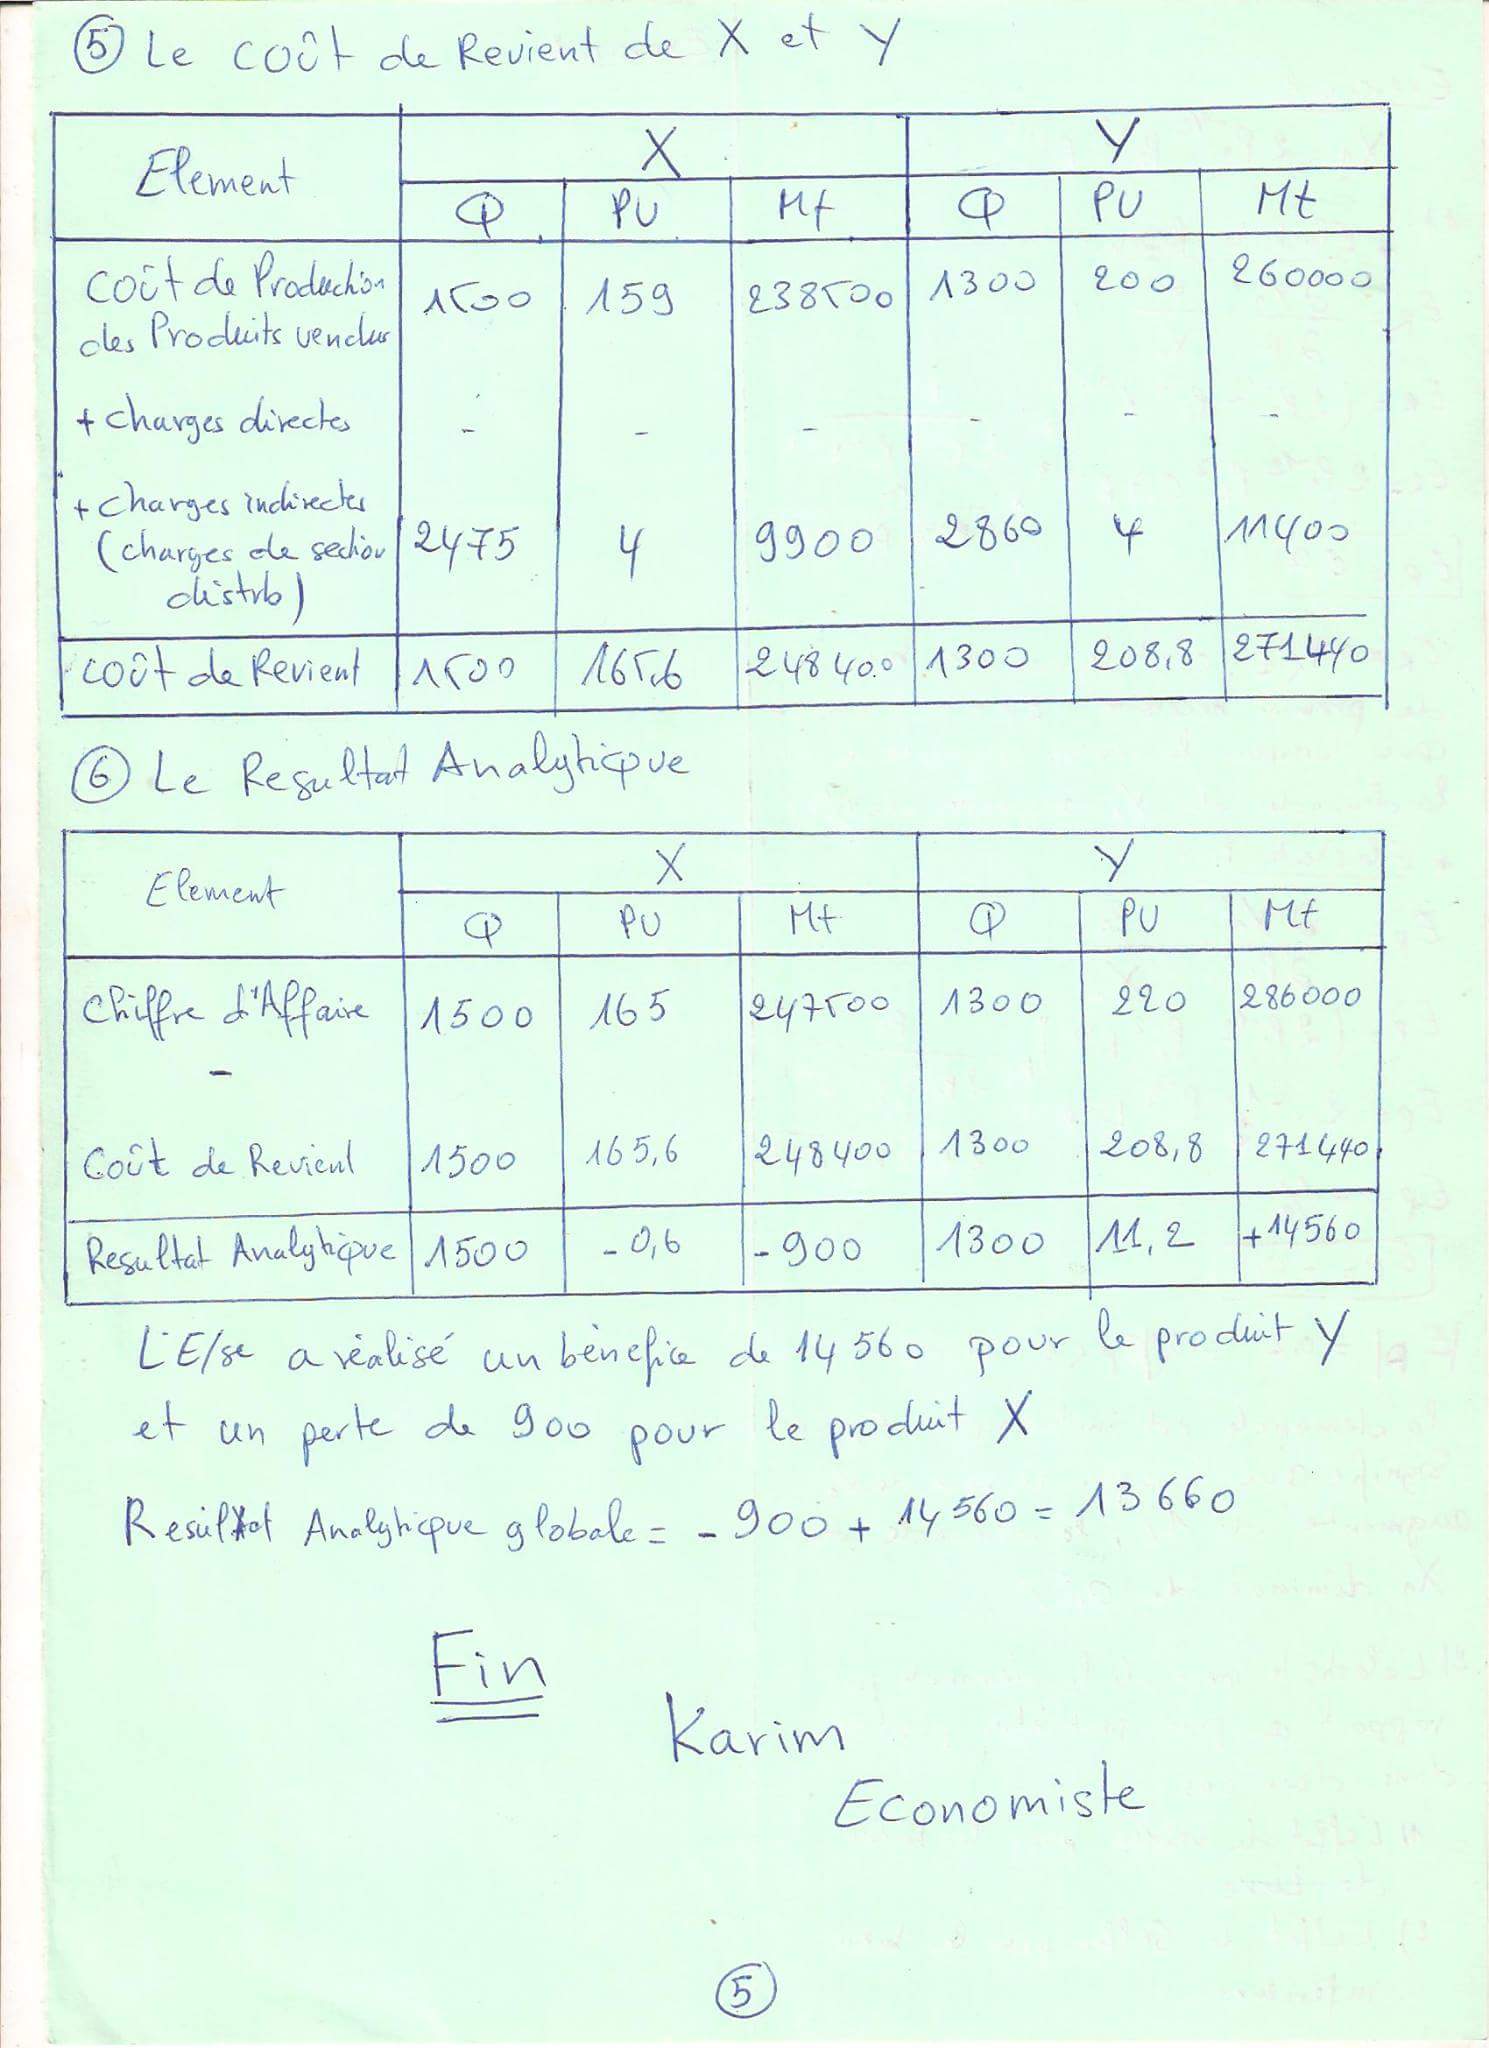 ⑤ Le coût de Revient de X et Y
Element X Y
Q PU Mt Q PU Mt
Coût de Production des Produits vendus 1500 159 238500 1300 200 260000
+ charges directes - - - - - -
+ charges indirectes (charges de section distrb) 2475 4 9900 2860 4 11400
coût de Revient 1500 165,6 248400 1300 208,8 271440
⑥ Le Resultat Analytique
Element X Y
Q PU Mt Q PU Mt
Chiffre d'Affaire 1500 165 247500 1300 220 286000
-
Coût de Revient 1500 165,6 248400 1300 208,8 271440
Resultat Analytique 1500 -0,6 -900 1300 11,2 +14560
L'E/se a réalisé un bénéfice de 14560 pour le produit Y
et un perte de 900 pour le produit X
Resultat Analytique globale = -900 + 14560 = 13660
Fin
Karim
Economiste
⑤